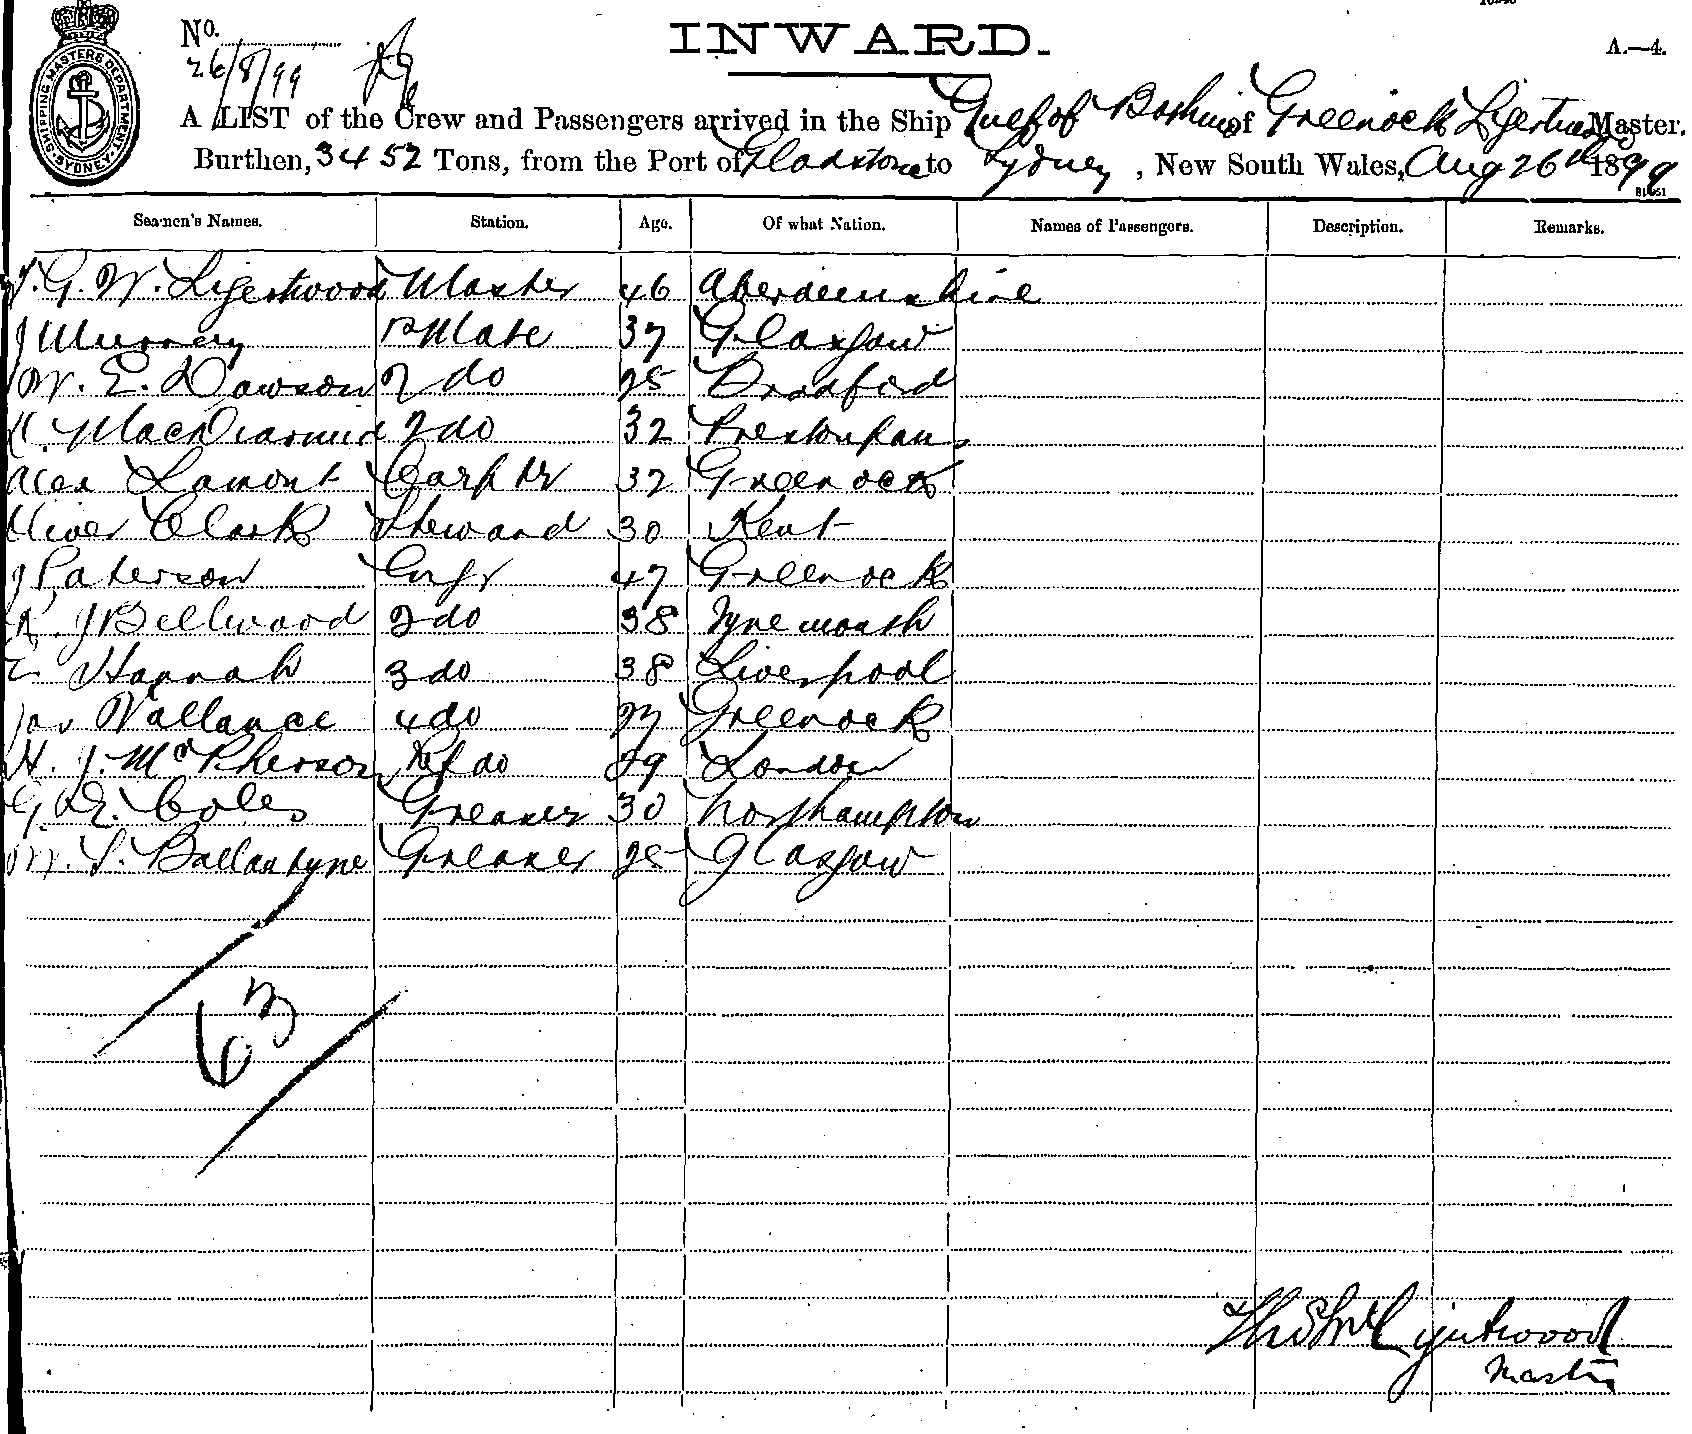 INWARD.
A.—4.
No.
26/8/99
SHIPPING MASTERS DEPARTMENT. SYDNEY.
A LIST of the Crew and Passengers arrived in the Ship Gulf of Bothnia of Greenock Ligertwood Master.
Burthen, 3452 Tons, from the Port of Gladstone to Sydney, New South Wales, Aug 26th 1899
Seamen's Names. Station. Age. Of what Nation. Names of Passengers. Description. Remarks.
T. G. W. Ligertwood Master 46 Aberdeenshire
J Murray 1st Mate 37 Glasgow
W. E. Dawson 2 do 25 Bradford
MacDiarmid 2 do 32 Prestonpans
Alex Lamont Carptr 32 Greenock
Oliver Clark Steward 30 Kent
J Paterson Engr 47 Greenock
R. J Bellwood 2 do 38 Tynemouth
E Hannah 3 do 38 Liverpool
Jas Vallance 4 do 27 Greenock
H. J. McPherson Rf do 29 London
G. E. Coles Greaser 30 Northampton
M. S. Ballantyne Greaser 25 Glasgow
63
Ligertwood
Master